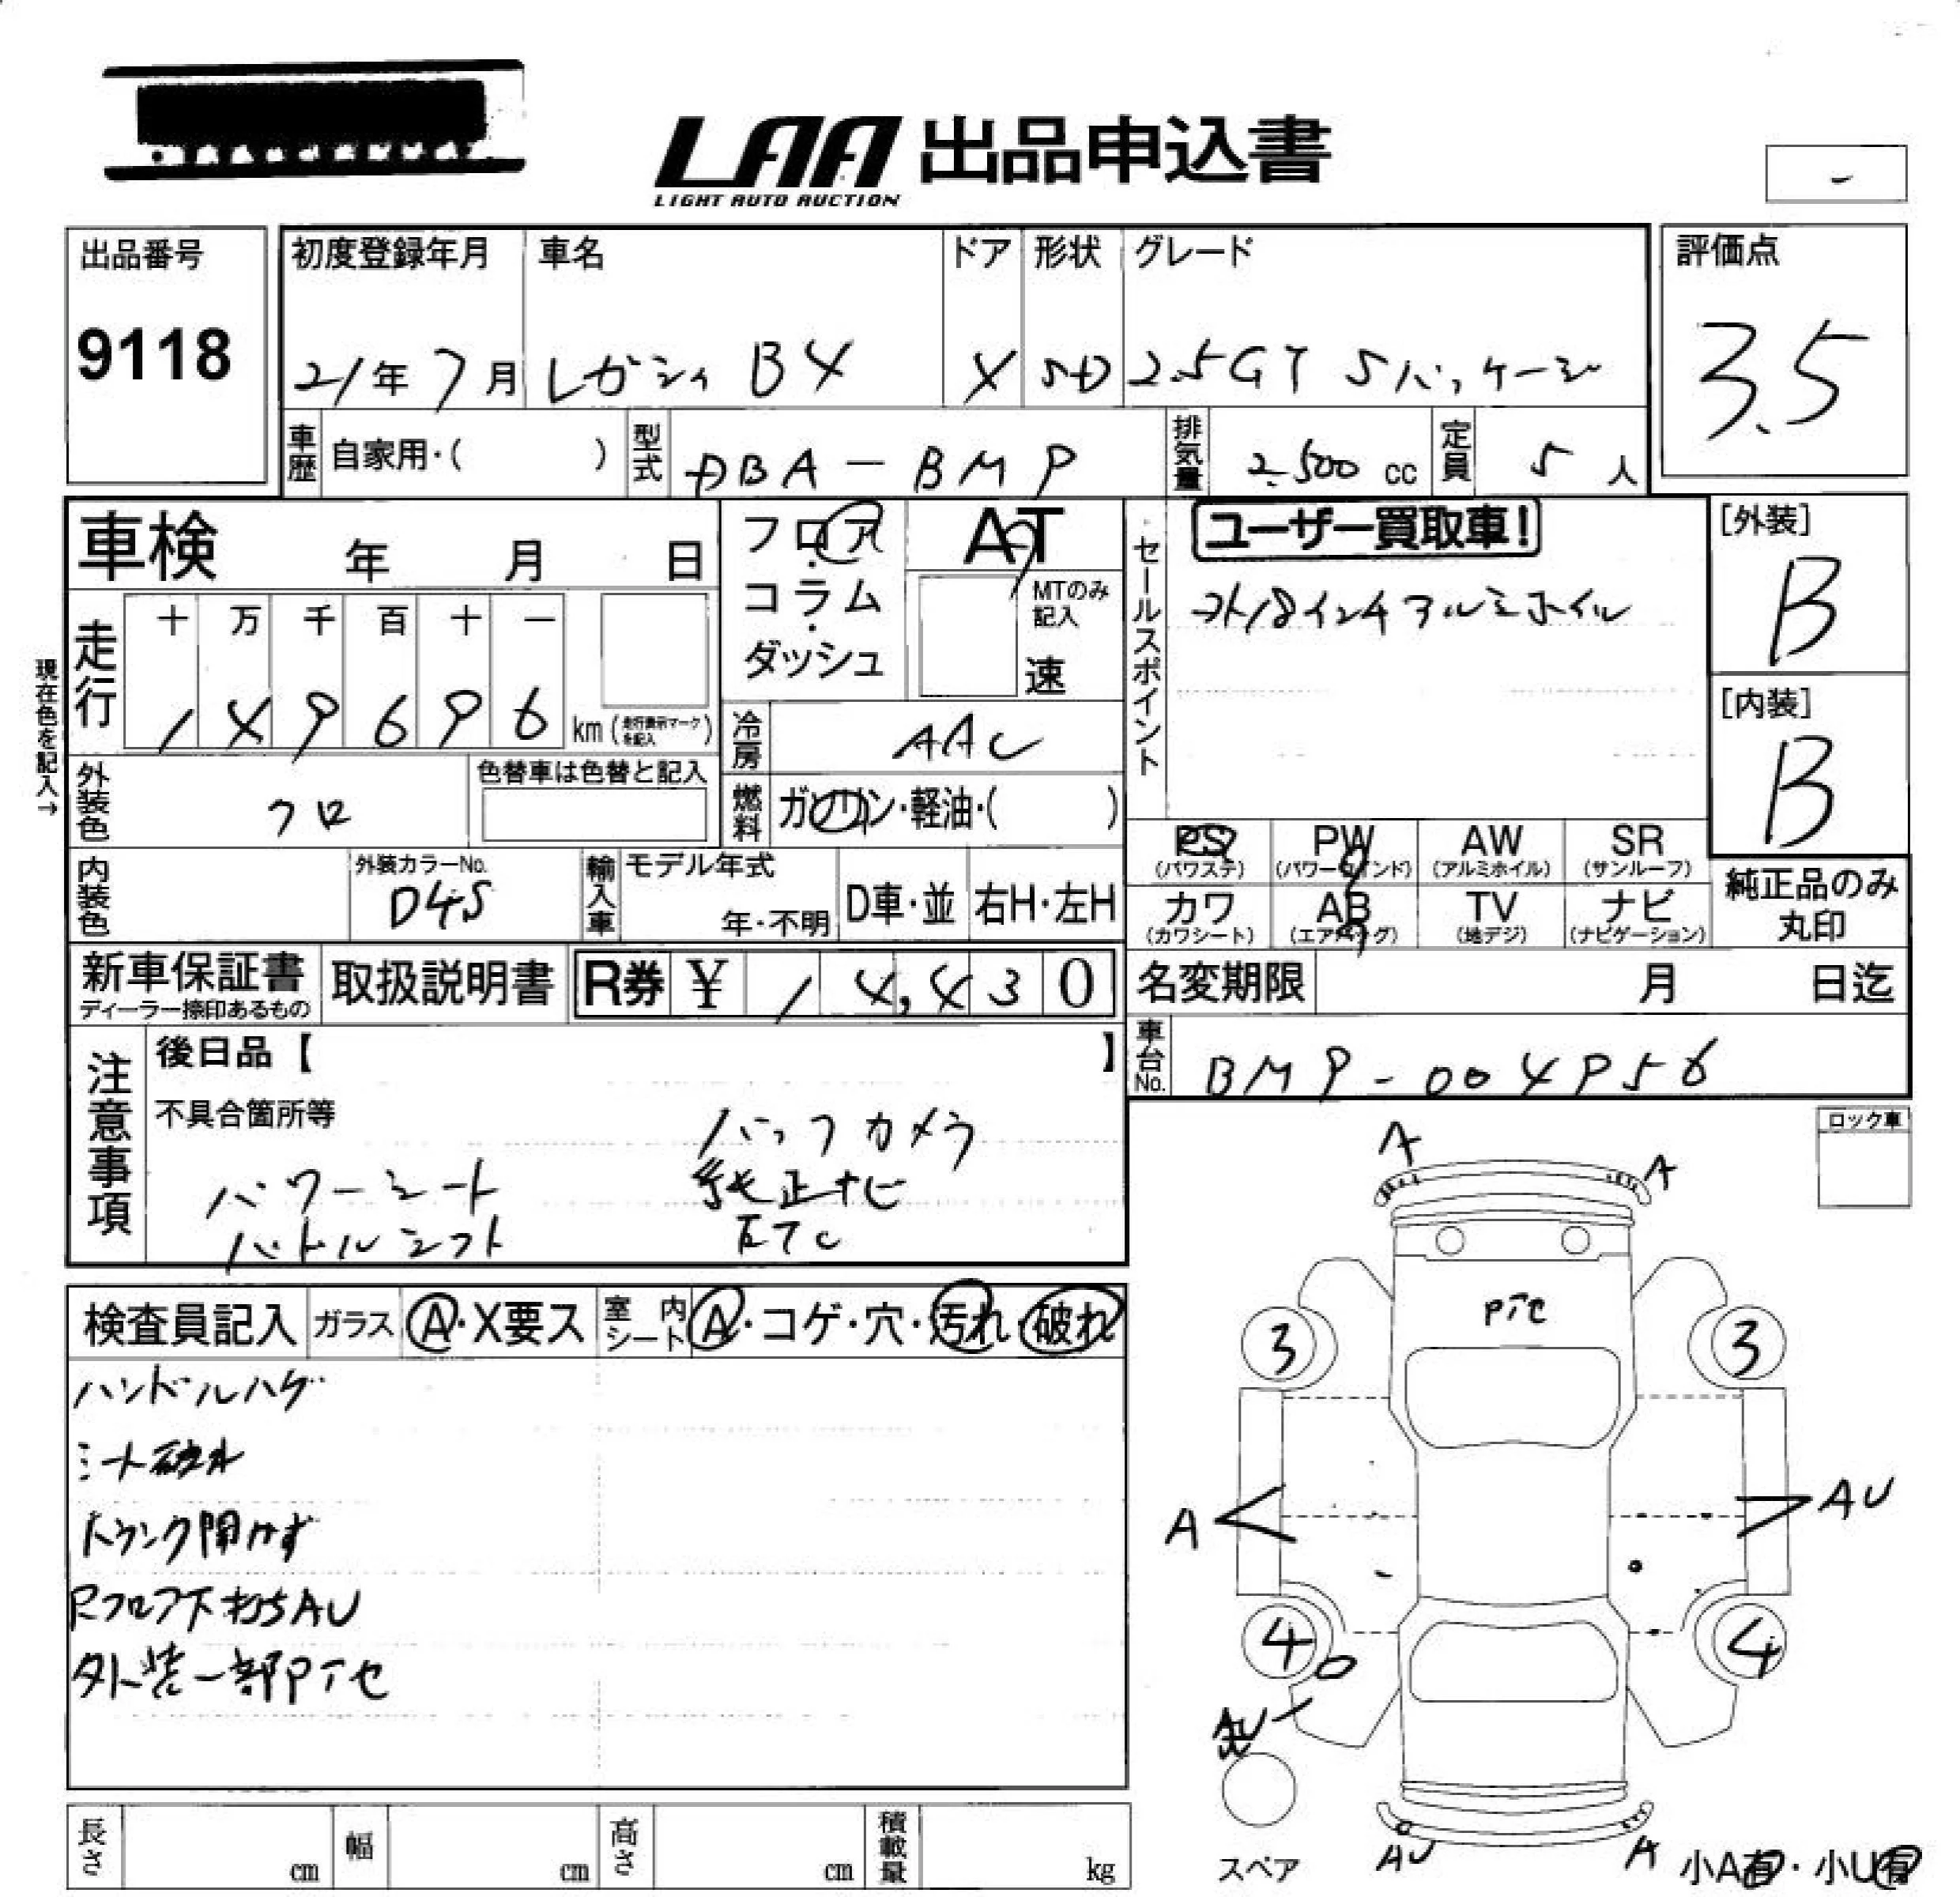 LAA 出品申込書
LIGHT AUTO AUCTION
-
出品番号
9118
初度登録年月
21年 7月
車名
レガシィ B4
ドア
4
形状
SD
グレード
2.5GT Sパッケージ
評価点
3.5
車歴
自家用・( )
型式
DBA-BM9
排気量
2500 cc
定員
5 人
車検 年 月 日
フロア・コラム・ダッシュ
AT
MTのみ記入
速
セールスポイント
ユーザー買取車!
外18インチアルミホイル
[外装]
B
[内装]
B
現在色を記入→
走行
十 万 千 百 十 一
1 4 9 6 9 6
km (走行表示マークを記入)
冷房
AAC
燃料
ガソリン・軽油・( )
外装色
クロ
色替車は色替と記入
内装色
外装カラーNo.
D4S
輸入車
モデル年式
年・不明
D車・並
右H・左H
PS (パワステ)
PW (パワーウインド)
AW (アルミホイル)
SR (サンルーフ)
カワ (カワシート)
AB (エアバッグ)
TV (地デジ)
ナビ (ナビゲーション)
純正品のみ丸印
新車保証書
ディーラー捺印あるもの
取扱説明書
R券 ¥ 14,430
名変期限 月 日迄
車台No.
BM9-004956
注意事項
後日品【 】
不具合箇所等
パワーシート
パドルシフト
バックカメラ
純正ナビ
ETC
ロック車
検査員記入
ガラス
A・X要ス
室内シート
A・コゲ・穴・汚れ・破れ
ハンドルハゲ
シート破れ
トランク開かず
Rフロア下打ちAU
外装一部Pテセ
A
A
Pテセ
3
3
A
AU
4
4
AU
スペア
AU
A
小A有・小U有
長さ cm
幅 cm
高さ cm
積載量 kg